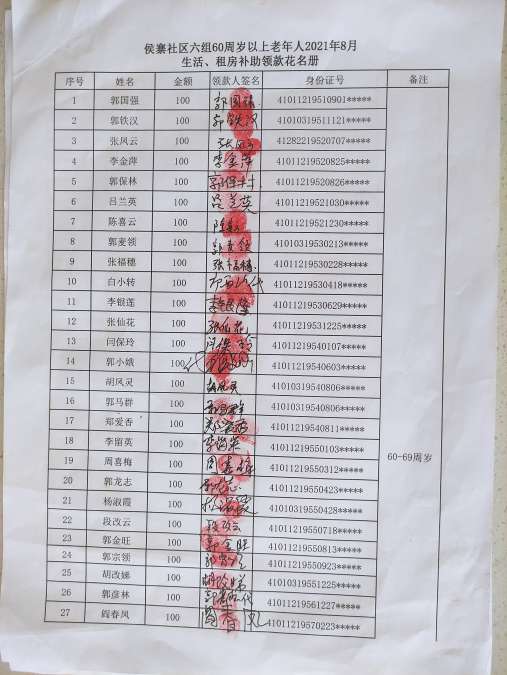 侯寨社区六组60周岁以上老年人2021年8月
生活、租房补助领款花名册
序号 姓名 金额 领款人签名 身份证号 备注
1 郭国强 100 郭国强 41011219510901*****
2 郭铁汉 100 郭铁汉 41010319511121*****
3 张凤云 100 41282219520707*****
4 李金萍 100 李金萍 41011219520825*****
5 郭保林 100 郭保林 41011219520826*****
6 吕兰英 100 吕兰英 41011219521030*****
7 陈喜云 100 41011219521230*****
8 郭麦领 100 郭麦领 41010319530213*****
9 张福穗 100 张福穗 41011219530228*****
10 白小转 100 41011219530418*****
11 李银莲 100 41011219530629*****
12 张仙花 100 张仙花 41011219531225*****
13 闫保玲 100 闫保玲 41011219540107*****
14 郭小娥 100 41011219540603*****
15 胡凤灵 100 胡凤灵 41010319540806*****
16 郭马群 100 41010319540806*****
17 郑爱香 100 41011219540811*****
18 李留英 100 李留英 41011219550103*****
19 周喜梅 100 周喜梅 41011219550312*****
20 郭龙志 100 41011219550423*****
21 杨淑霞 100 41010319550428*****
22 段改云 100 段改云 41011219550718*****
23 郭金旺 100 郭金旺 41011219550813*****
24 郭宗领 100 41011219550923*****
25 胡改娣 100 胡改娣 41010319551225*****
26 郭彦林 100 41011219561227*****
27 阎春风 100 41011219570223*****
60-69周岁